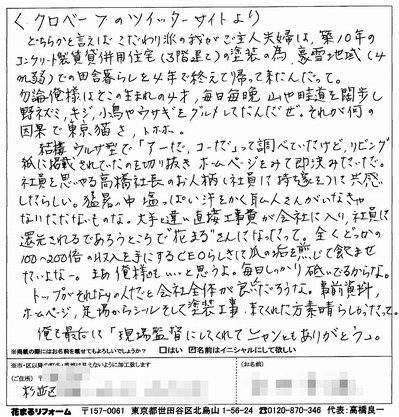 く.クロベーフのツイッターサイトより
どちらかと言えばこだわり派の我がご主人夫婦は、築10年の
コンクリート製賃貸併用住宅(3階建て)の塗装の為、豪雪地域(4
m弱)での田舎暮らしを4年で終えて帰って来たんだって。
勿論俺様はそこの生まれの4才、毎日毎晩 山や畦道を闊歩し
野ネズミ、キジ、小鳥やウサギをグルメしてたんだぜ。それが何の
因果で東京猫さ、トホホ。
結構ウルサ型で「アーだ、コーだ」って調べていたけど、リビング
紙に掲載されていたのを切り抜き ホームページをみて即決みたいだ。
社員を思いやる高橋社長のお人柄(社員に持家を)に共感
したらしい。猛暑の中塩っぱい汗をかく職人さんがいなきゃ
ないただないものな。大手と違い直接工事費が会社に入り、社員に
還元されるであろうところで"花まる"さんになったって。全くどっかの
100~200倍の収入を手にするCEOらしきには爪の垢を煎じて飲ませ
たいよな〜。まあ俺様はもいいと思うよ。毎日しっかり砥いでるからな。
トップがそれなりの人だと会社全体が良いだろうな。事前資料、
ホームページ、足場からシールそして塗装工事、まてくれた方素晴らしかったって。
俺も最后に「現場監督にしてくれてニャンともありがとう」。
※掲載の際にはお名前を載せてもよろしいでしょうか? □はい ☑名前はイニシャルにして欲しい
※市・区以降の町名・番地は見えないように加工致します
(ご住所) 〒
杉並区
(お名前)
花まるリフォーム 〒157-0061 東京都世田谷区北烏山1-56-24 ☎0120-870-346 代表:高橋良一